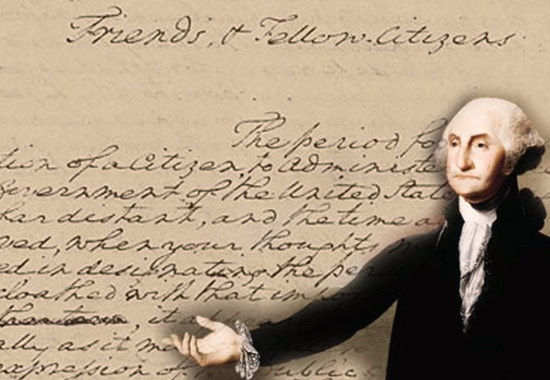 Friends, & Fellow-Citizens
The period fo
tion of a Citizen, to administe
overnment of the United Stat
far distant, and the time a
ved, when your thoughts
ed in designating the per
cloathed with that impo
it appea
ally as it ma
expression of publick